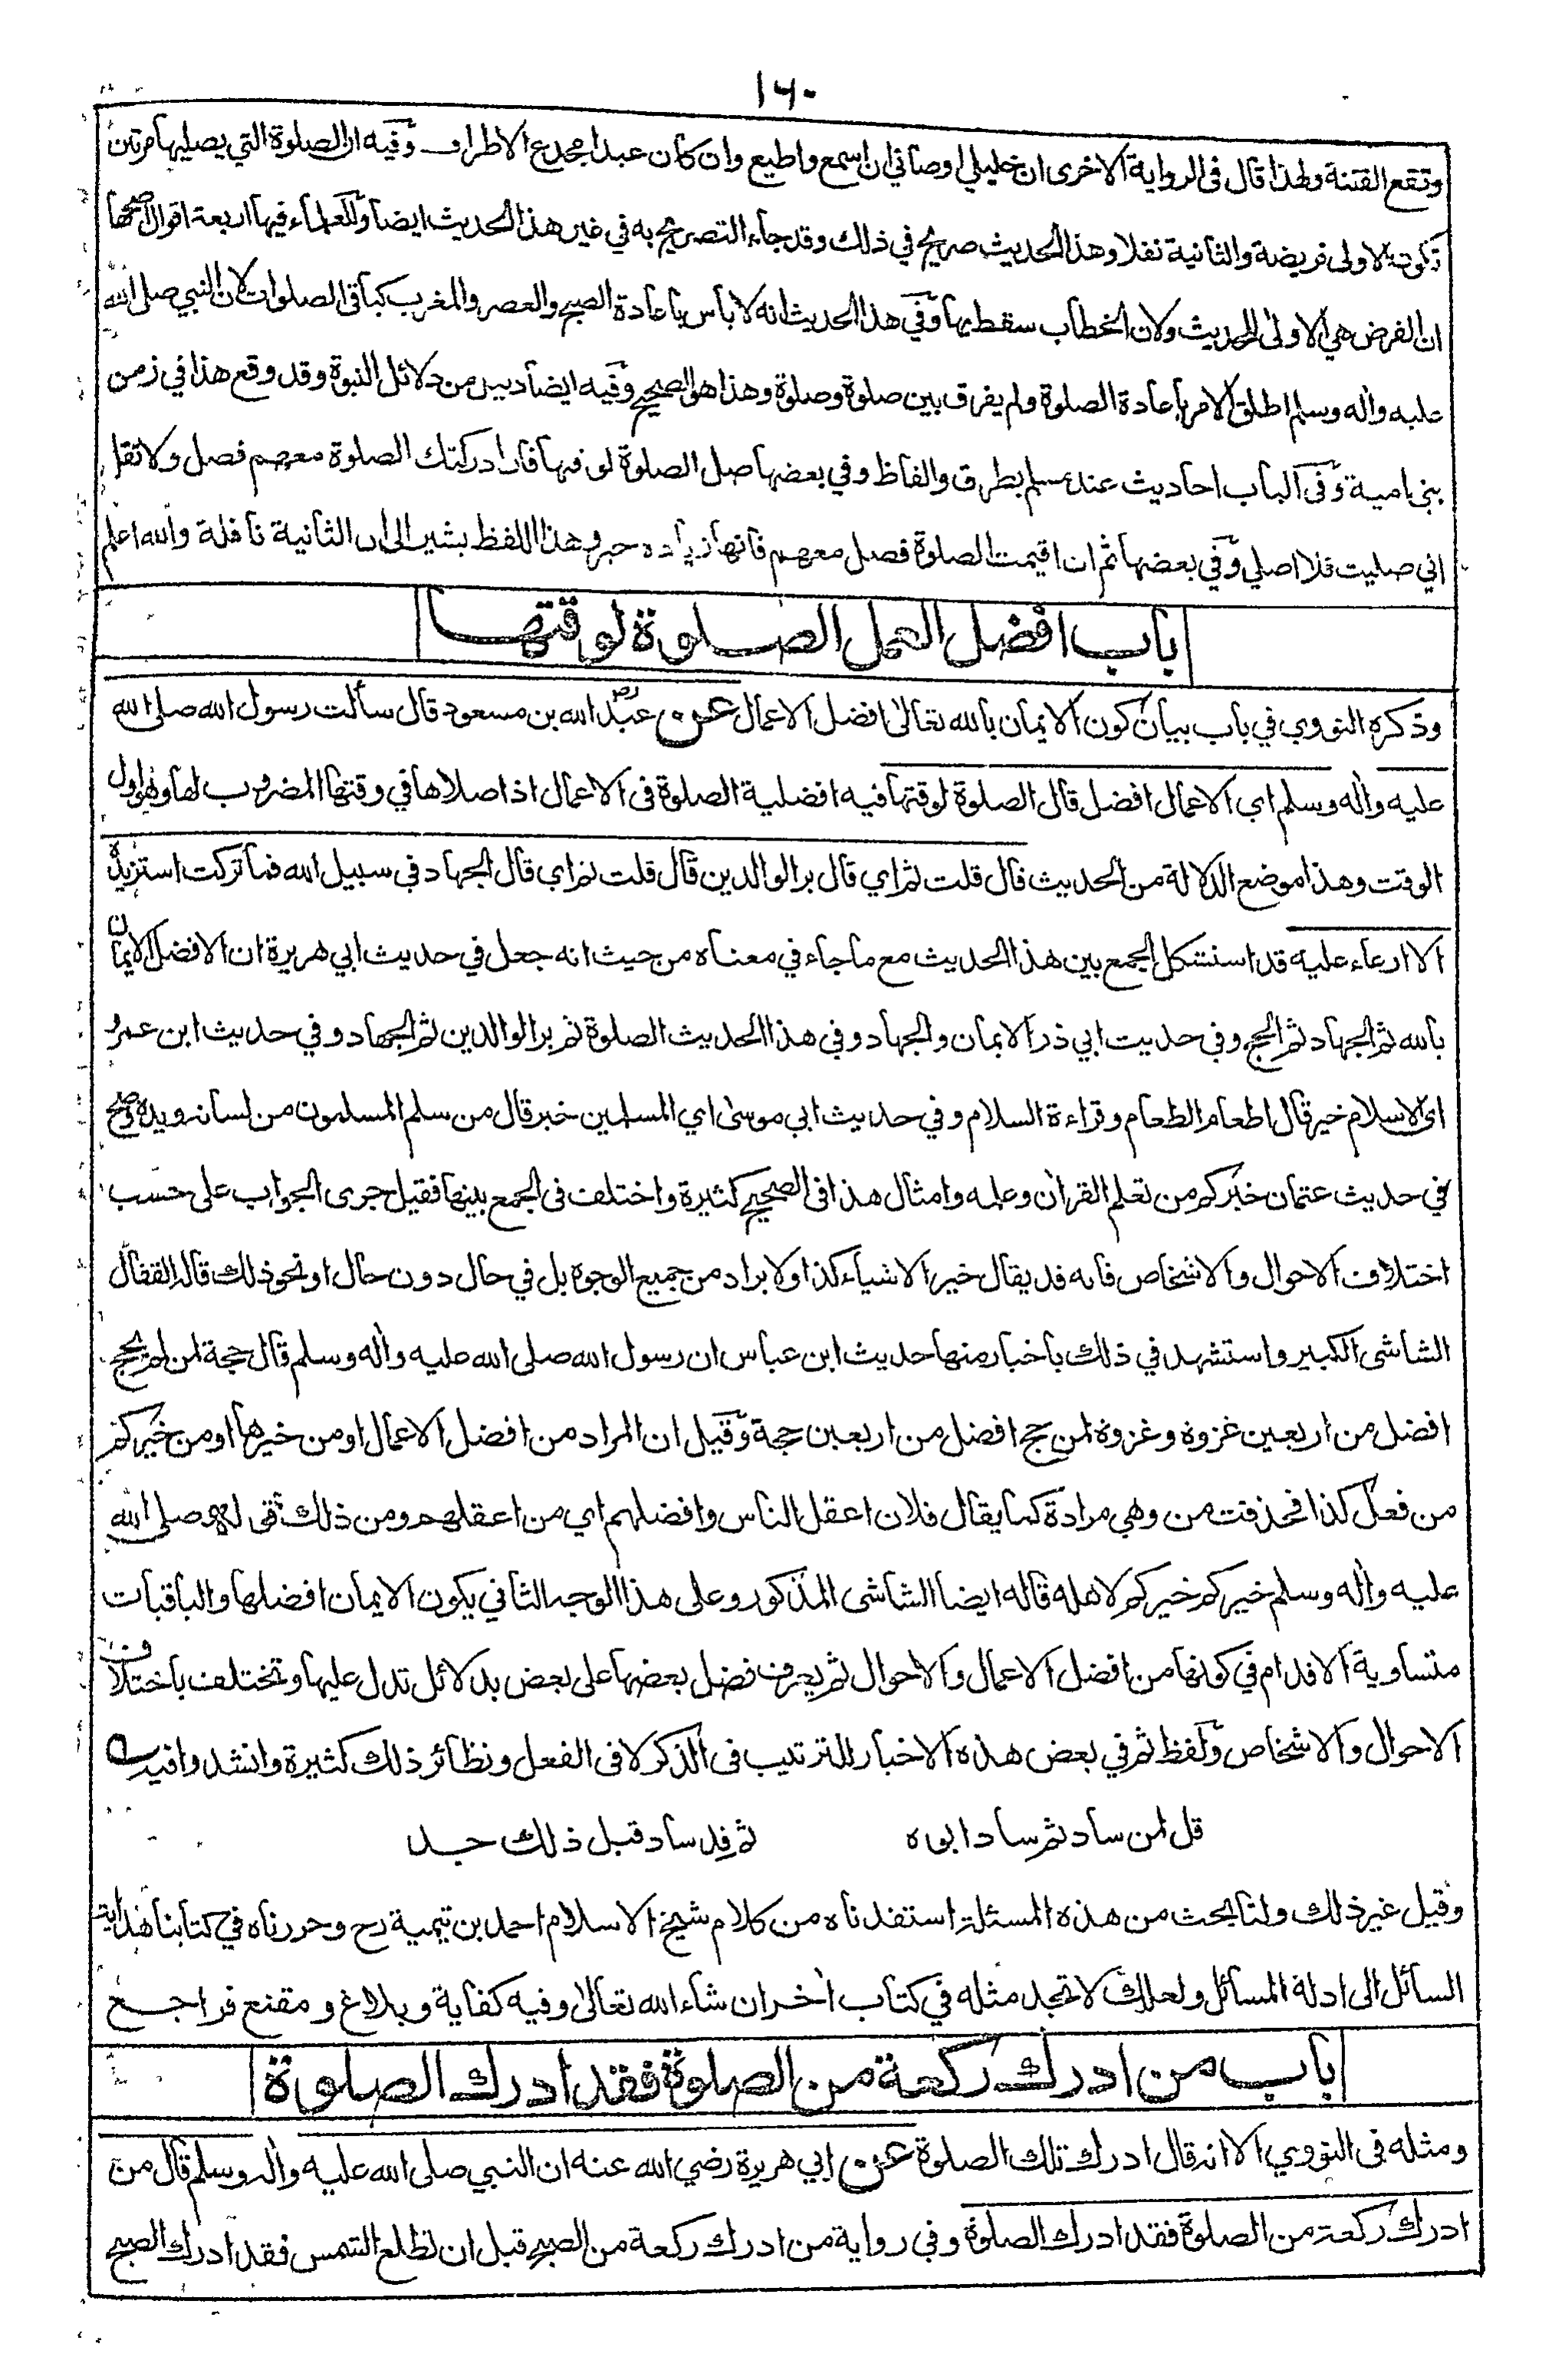 ١٦٠
وتقع الفتنة ولهذا قال فى الرواية الاخرى ان خليلي اوصاني ان اسمع واطيع وان كان عبدا مجدع الاطراف وفيه ان الصلوة التي يصليها مرتين
تكون الاولى فريضة والثانية نفلا وهذا الحديث صريح في ذلك وقد جاء التصريح به في غير هذا الحديث ايضا وللعلماء فيها اربعة اقوال اصحها
ان الفرض هي الاولى للحديث ولان الخطاب سقط بها وفي هذا الحديث انه لا باس باعادة الصبح والعصر والمغرب كباقى الصلوات لان النبي صلى الله
عليه واله وسلم اطلق الامر باعادة الصلوة ولم يفرق بين صلوة وصلوة وهذا هو الصحيح وفيه ايضا دليل من دلائل النبوة وقد وقع هذا في زمن
بني امية وفى الباب احاديث عند مسلم بطرق والفاظ وفي بعضها صل الصلوة لوقتها فان ادركتك الصلوة معهم فصل ولا تقل
اني صليت فلا اصلي وفي بعضها ثم ان اقيمت الصلوة فصل معهم فانها زيادة خير وهذا اللفظ يشير الى ان الثانية نافلة والله اعلم
باب افضل العمل الصلوة لوقتها
وذكره النووي في باب بيان كون الايمان بالله تعالى افضل الاعمال عن عبد الله بن مسعود رض قال سألت رسول الله صلى الله
عليه واله وسلم اي الاعمال افضل قال الصلوة لوقتها فيه افضلية الصلوة فى الاعمال اذا صلاها في وقتها المضروب لها وهو اول
الوقت وهذا موضع الدلالة من الحديث قال قلت ثم اي قال بر الوالدين قال قلت ثم اي قال الجهاد في سبيل الله فما تركت استزيده
الا ارعاء عليه قد استشكل الجمع بين هذا الحديث مع ما جاء في معناه من حيث انه جعل في حديث ابي هريرة ان الافضل الايمان
بالله ثم الجهاد ثم الحج وفي حديث ابي ذر الايمان والجهاد وفي هذا الحديث الصلوة ثم بر الوالدين ثم الجهاد وفي حديث ابن عمرو
اي الاسلام خير قال اطعام الطعام وقراءة السلام وفي حديث ابي موسى اي المسلمين خير قال من سلم المسلمون من لسانه ويده وصح
في حديث عثمان خيركم من تعلم القران وعلمه وامثال هذا فى الصحيح كثيرة واختلف فى الجمع بينها فقيل جرى الجواب على حسب
اختلاف الاحوال والاشخاص فانه قد يقال خير الاشياء كذا ولا يراد من جميع الوجوه بل في حال دون حال او نحو ذلك قاله القفال
الشاشى الكبير واستشهد في ذلك باخبار منها حديث ابن عباس ان رسول الله صلى الله عليه واله وسلم قال حجة لمن لم يحج
افضل من اربعين غزوة وغزوة لمن حج افضل من اربعين حجة وقيل ان المراد من افضل الاعمال او من خيرها او من خيركم
من فعل كذا فحذفت من وهي مرادة كما يقال فلان اعقل الناس وافضلهم اي من اعقلهم ومن ذلك قوله صلى الله
عليه واله وسلم خيركم خيركم لاهله قاله ايضا الشاشى المذكور وعلى هذا الوجه الثاني يكون الايمان افضلها والباقيات
متساوية الاقدام في كونها من افضل الاعمال والاحوال ثم يعرف فضل بعضها على بعض بدلائل تدل عليها وتختلف باختلاف
الاحوال والاشخاص ولفظ ثم في بعض هذه الاخبار للترتيب فى الذكر لا فى الفعل ونظائر ذلك كثيرة وانشدوا فيه
قل لمن ساد ثم ساد ابوه ثم قد ساد قبل ذلك جده
وقيل غير ذلك ولنا بحث من هذه المسئلة استفدناه من كلام شيخ الاسلام احمد بن تيمية رح وحررناه في كتابنا هداية
السائل الى ادلة المسائل ولعلك لا تجد مثله في كتاب اخر ان شاء الله تعالى وفيه كفاية وبلاغ ومقنع فراجع
باب من ادرك ركعة من الصلوة فقد ادرك الصلوة
ومثله فى النووي الا انه قال ادرك تلك الصلوة عن ابي هريرة رضي الله عنه ان النبي صلى الله عليه واله وسلم قال من
ادرك ركعة من الصلوة فقد ادرك الصلوة وفي رواية من ادرك ركعة من الصبح قبل ان تطلع الشمس فقد ادرك الصبح